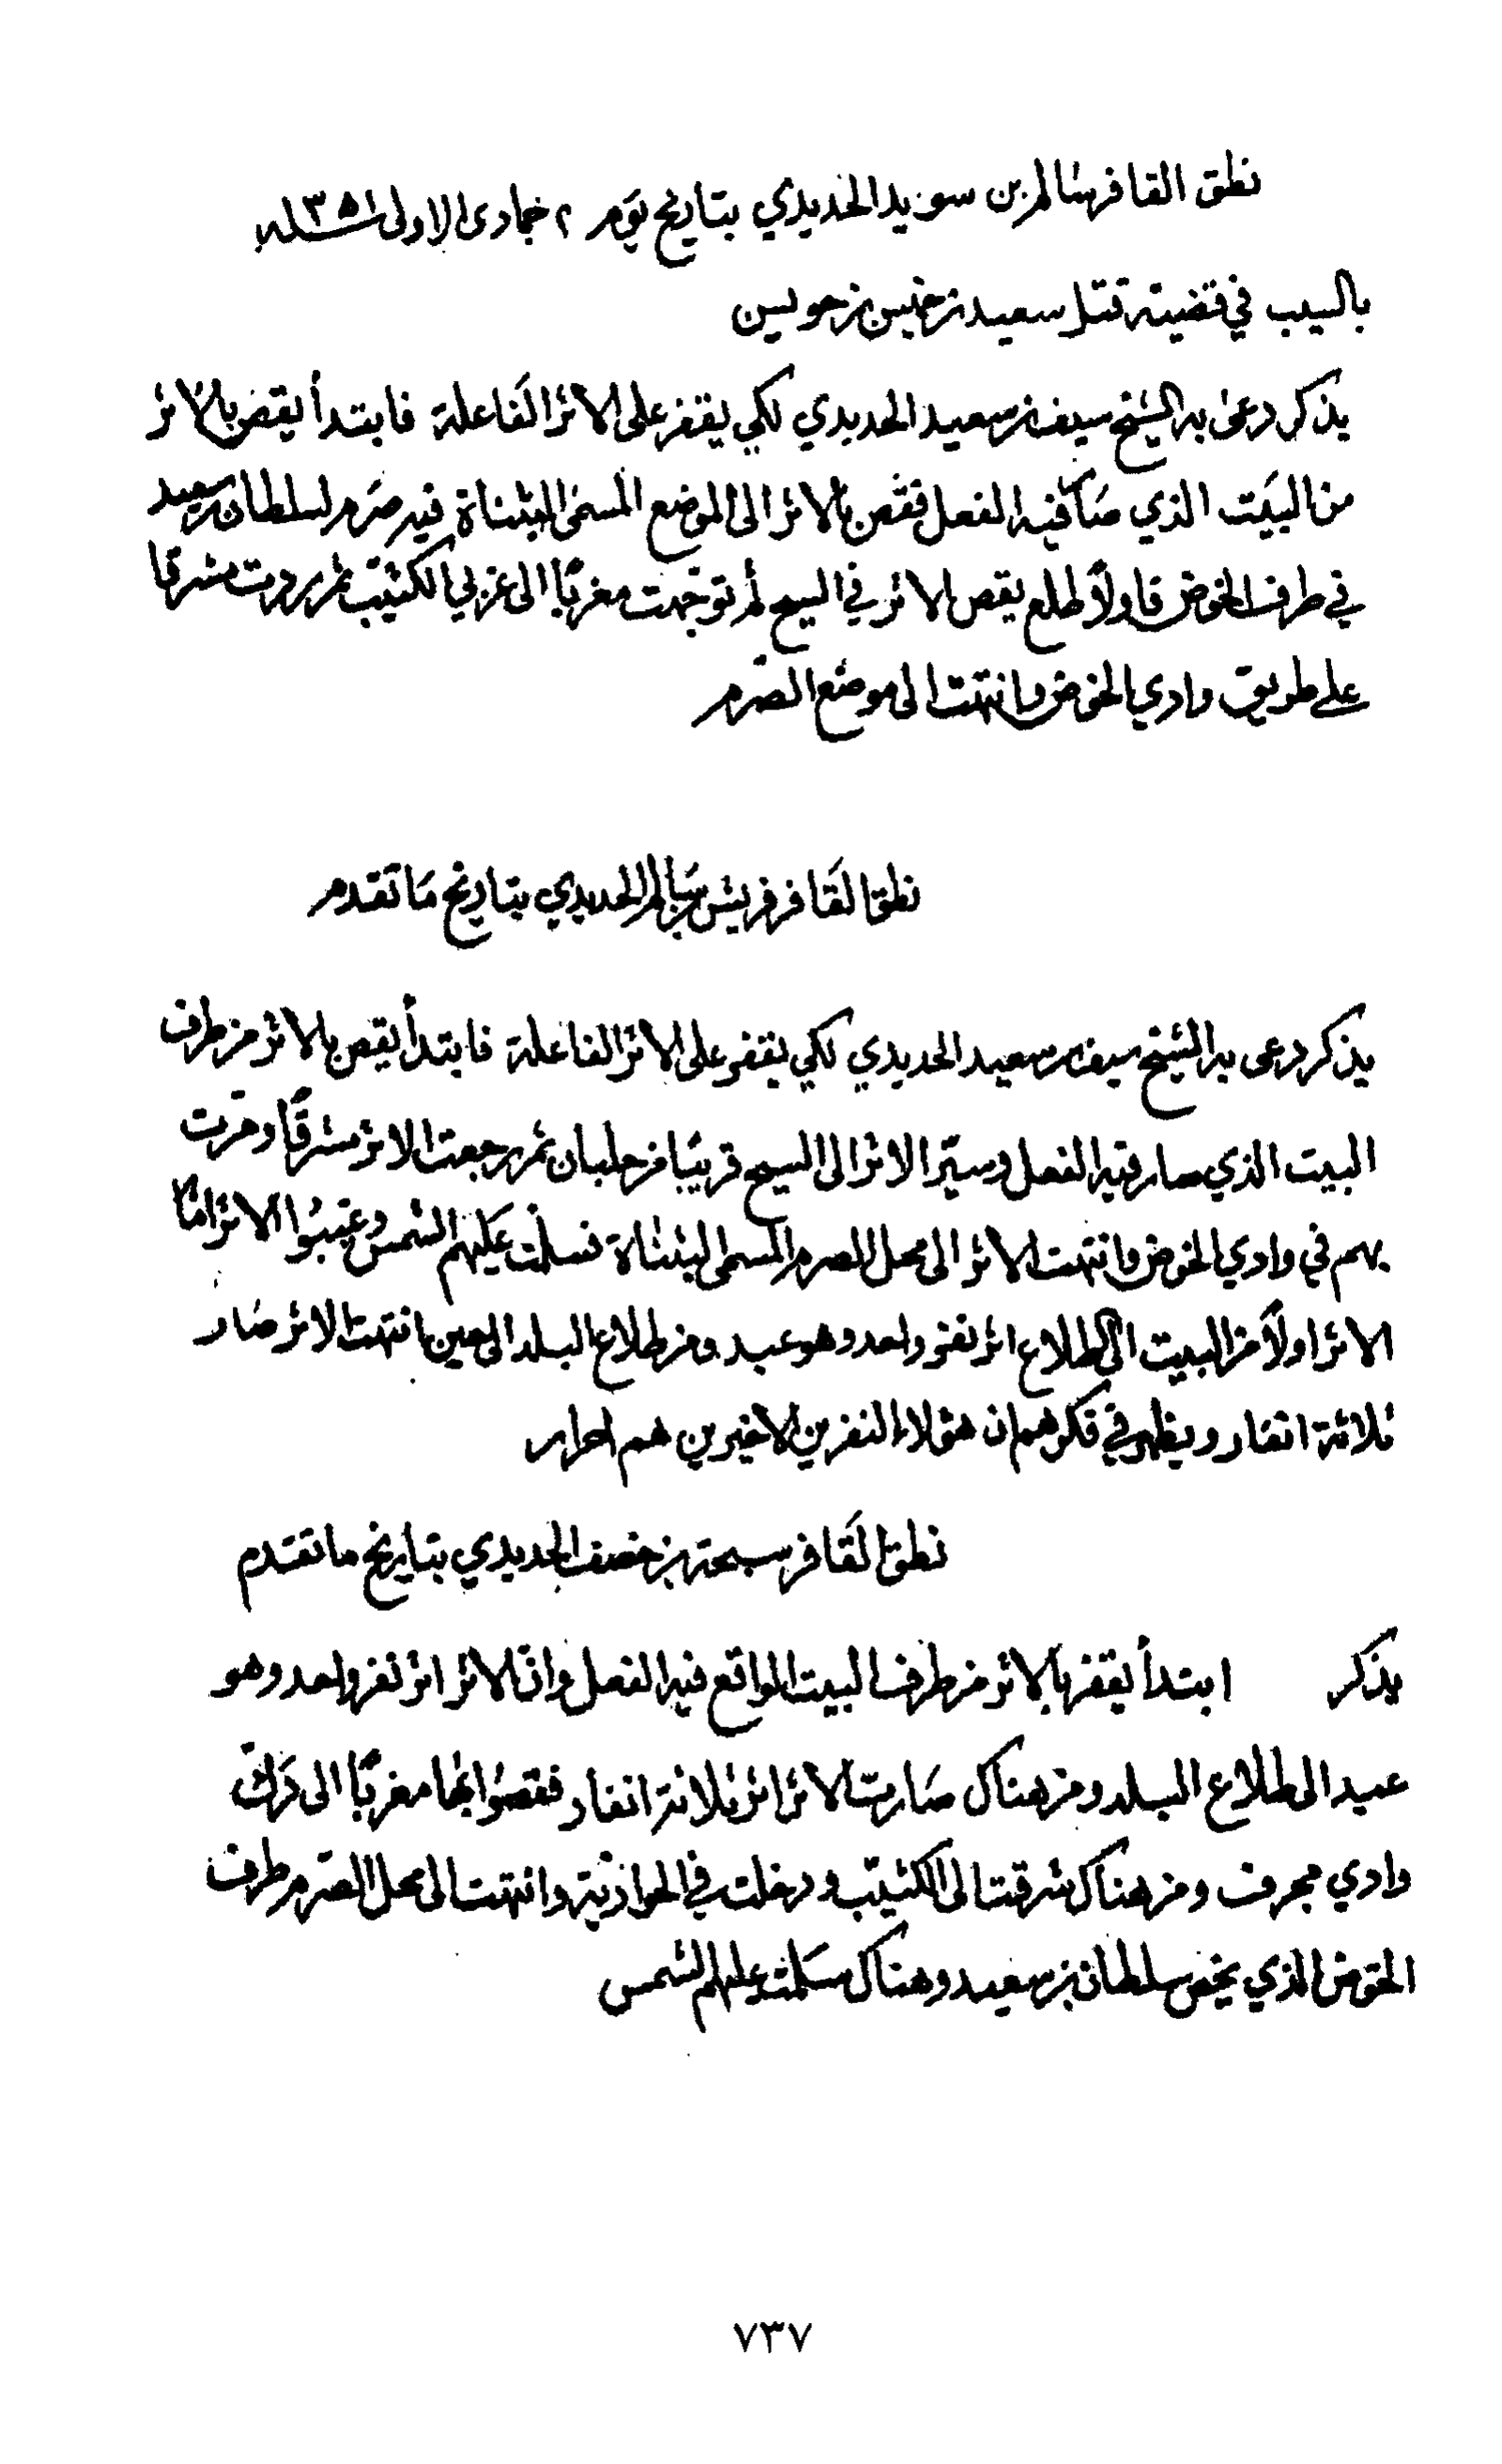 نطق القافر سالم بن سويد الحديدي بتاريخ يوم ٢ جمادى الاولى سنة ١٣٥١
بالسيب في قضية قتل سعيد بن خميس بن حويسن
يذكر دعى به الشيخ سيف بن سعيد الحديدي لكي يقفر على الاثر الفاعلة فابتدأ يقص بالاثر
من البيت الذي صار فيه الفعل فقص بالاثر الى الموضع المسمى البثناة فيه صرم لسلطان بن سعيد
في طرف الخوض فاولاً طلع يقص الاثر في السيح ثم توجهت مغرباً الى غربي الكثيب ثم ردت مشرقا
على طريق وادي الخوض وانتهت الى موضع الصرم
نطق القافر فريش بن سالم الحديدي بتاريخ ما تقدم
يذكر دعى به الشيخ سيف بن سعيد الحديدي لكي يقفر على الاثر الفاعلة فابتدأ يقص بالاثر من طرف
البيت الذي صار فيه الفعل وسيّر الاثر الى السيح قريباً من حلبان ثم رجعت الاثر مشرقاً ومرت
بهم في وادي الخوض وانتهت الاثر الى محل الصرم المسمى البثناة فسلمت عليهم الشمس وغيبوا الاثر امّا
الاثر اولاً من البيت الى طلاع اثر نفر واحد وهو عبد ومن طلاع البلد الى حين انتهت الاثر صار
ثلاثة انفار ويظهر في فكرهم ان هؤلاء النفرين الاخيرين هم احرار
نطق القافر سبحة بن خصف الحديدي بتاريخ ما تقدم
يذكر ابتدأ يقفر بالاثر من طرف البيت الواقع فيه الفعل وانّ الاثر اثر نفر واحد وهو
عبد الى طلاع البلد ومن هناك صارت الاثر اثر ثلاثة انفار فقصوا بها مغرباً الى درك
وادي مجرف ومن هناك شرقت الى الكثيب ودخلت في الحواذية وانتهت الى محل الصرم طرف
الخوض الذي يخص سلطان بن سعيد وهناك سلمت عليهم الشمس
٧٣٧